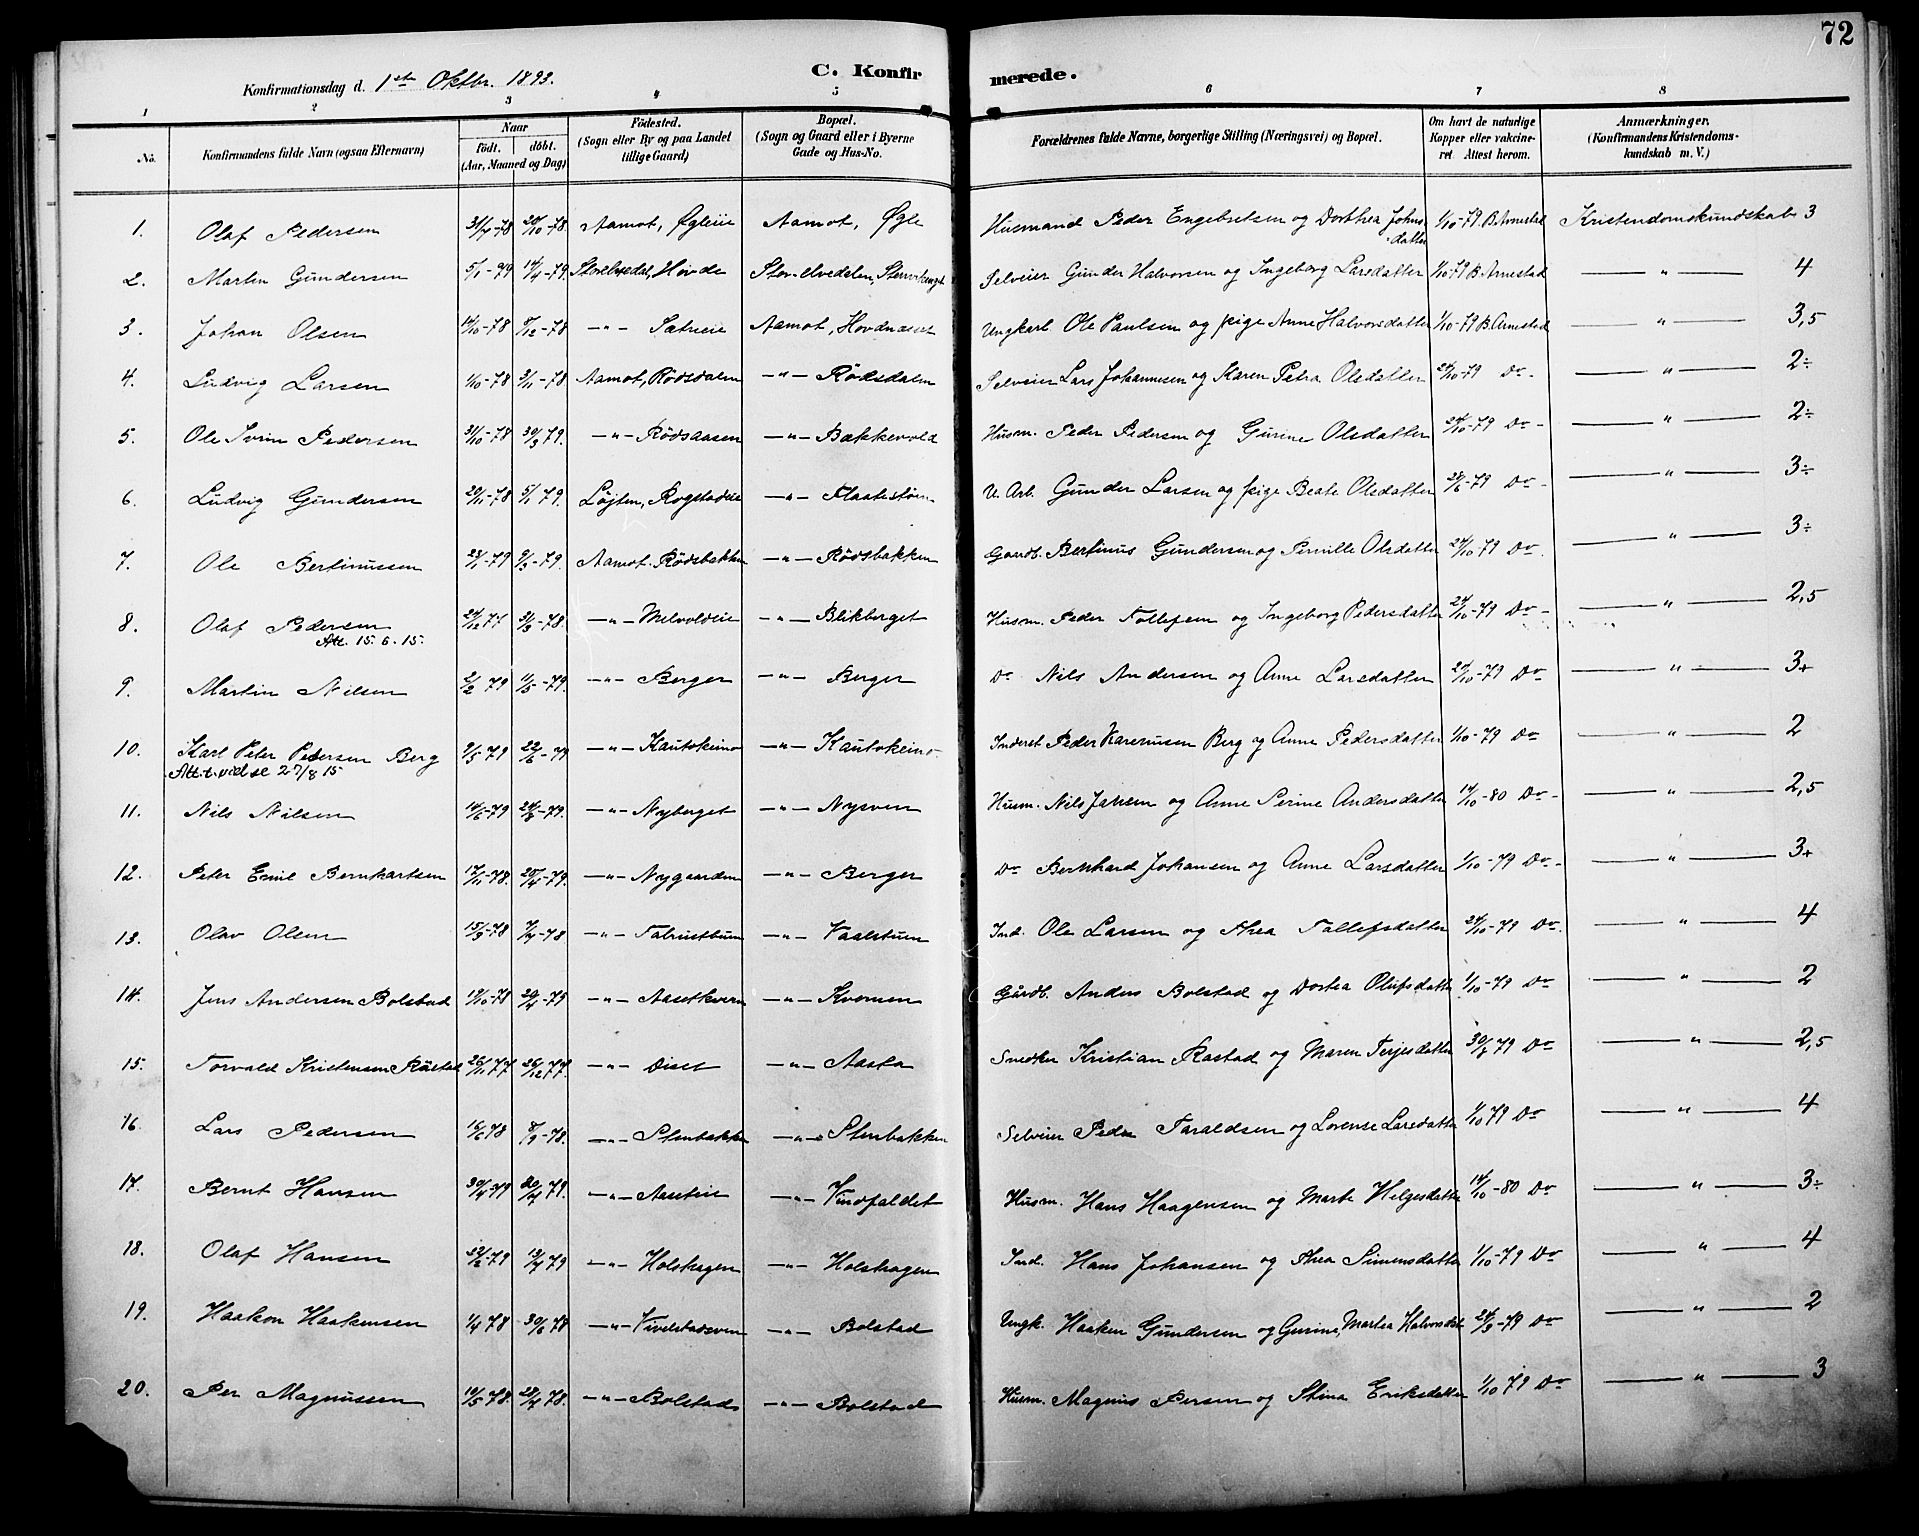 72
Konfirmationsdag d. 1ste Oktbr. 1893.
C. Konfirmerede.
1 2 3 4 5 6 7 8
No.
Konfirmandens fulde Navn (ogsaa Efternavn)
Naar födt. döbt. (Aar, Maaned og Dag)
Födested. (Sogn eller By og paa Landet tillige Gaard)
Bopæl. (Sogn og Gaard eller i Byerne Gade og Hus-No.
Forældrenes fulde Navne, borgerlige Stilling (Næringsvei) og Bopæl.
Om havt de naturlige Kopper eller vakcineret Attest herom.
Anmærkninger. (Konfirmandens Kristendomskundskab m. V.)
1. Olaf Pedersen 31/7-78 20/10-78 Aamot, Ögleie Aamot, Øgle Husmand Peder Engebretsen og Dorthea Johnsdatter 1/10-79 B. Arnestad Kristendomskundskab 3
2. Martin Gundersen 5/1-79 14/4-79 Storelvedal, Hovde Stor-elvedalen, Selveier Gunder Halvorsen og Ingeborg Larsdatter 1/10-79 B. Arnestad — " — 4
3. Johan Olsen 14/10-78 8/12-78 — " — Sætreie Aamot, Hovdnæset Ungkarl Ole Paulsen og pige Anne Halvorsdatter 1/10-79 B. Arnestad — " — 3,5
4. Ludvig Larsen 1/10-78 3/11-78 Aamot, Rödsdalen — " — Rödsdalen Selveier Lars Johannesen og Karen Petra Olsdatter 24/10-79 Do — " — 2÷
5. Ole Ivrin Pedersen 31/10-78 30/3 79. — " — Rödsaasen — " — Bækkevold Husm. Peder Pedersen og Gurine Olsdatter 24/10-79 Do — " — 2÷
6. Ludvig Gundersen 20/11-78 5/1 79. Löjten, Rogstadeie — " — Flaatestøen U. Arb. Gunder Larsen og pige Beate Olsdatter 28/6-79 Do — " — 3÷
7. Ole Bertinussen 23/1-79 9/3-79. Aamot. Rödsbakken — " — Rödsbakken Gaardb. Bertinus Gundersen og Pernille Olsdatter 24/10-79 Do. — " — 3÷
8. Olaf Pedersen 24/12 77 3/3-78. — " — Melvoldeie — " — Blikberget Husm. Peder Tollefsen og Ingeborg Pedersdatter 24/10-79 Do — " — 2,5
Att. 15.6.15.
9. Martin Nilsen 2/2 79 11/5-79. — " — Berger — " — Berger Do Nils Andersen og Anne Larsdatter 24/10-79 Do — " — 3+
10. Karl Peter Pedersen Berg 9/5 79 22/6-79 — " — Kautokeino — " — Kautokeino Inderst Peder Karenusen Berg og Anne Pedersdatter 1/10-79 Do — " — 2
Att. t. vielse 27/8 15
11. Nils Nilsen 14/6-79 24/8-79. — " — Nyberget — " — Nysven Husm. Nils Jansen og Anne Perine Andersdatter 14/10-80 Do — " — 2,5
12. Peter Emil Bernhartsen 17/11-78. 20/4-79. — " — Nygaarden — " — Berger Do Bernhard Johansen og Anne Larsdatter 1/10-79 Do — " — 3+
13. Olav Olsen 15/3-78 7/4-78 — " — — " — Vaalstuen Ind. Ole Larsen og Thea Tollefsdatter 24/10-79 Do. — " — 4
14. Jens Andersen Bolstad 19/10-78 20/4-79 — " — Aasetkvern — " — Kvernen Gårdb. Anders Bolstad og Dortea Olufsdatter 1/10-79 Do — " — 2
15. Torvald Kristensen Råstad 26/11 77 26/12 77. — " — Diset — " — Aasta Snedker Kristian Rastad og Maren Terjesdatter 30/7 79 Do — " — 2,5
16. Lars Pedersen 16/6 78 8/9-78. — " — Stenbakken — " — Stenbakken Selveier Peder Taraldsen og Lorense Larsdatter 1/10 79 Do — " — 4
17. Bernt Hansen 30/4-79 20/4 79. — " — Aaseteie — " — Vindfaldet Husm. Hans Haagensen og Marte Helgesdatter 14/10-80 Do — " — 3÷
18. Olaf Hansen 23/2-79 13/4 79 — " — Holshagen — " — Holshagen Ind. Hans Johansen og Thea Simensdatter 1/10-79 Do — " — 4
19. Haakon Haakensen 1/4 78 30/6 78 — " — — " — Bolstad Ungk. Haaken Gundersen og Gurine Martea Halvorsdt. 24/3-79 Do — " — 2
20. Per Magnussen 10/3 78. 28/4 78. — " — Bolstad — " — Bolstad Husm. Magnus Persen og Stina Eriksdatter 1/10 79 Do — " — 3